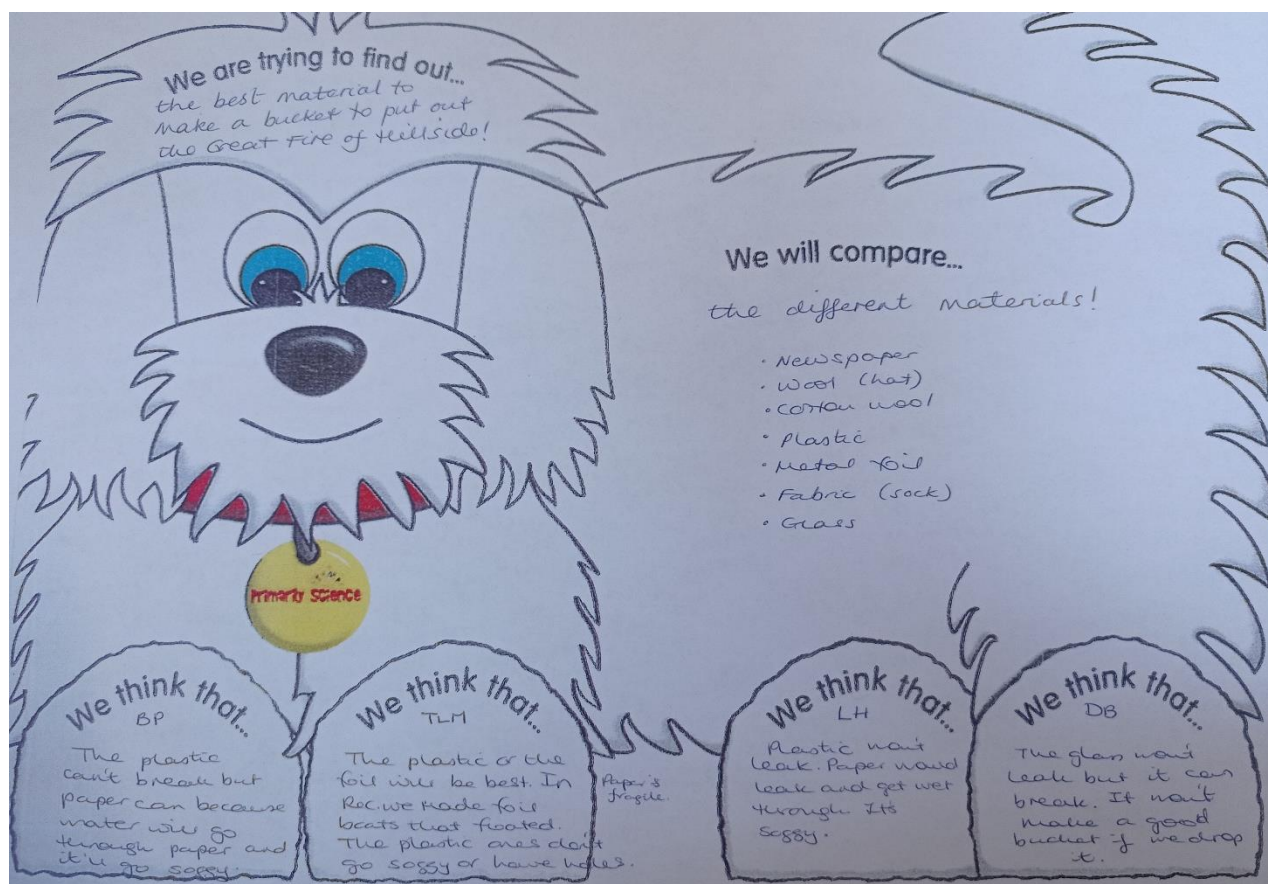 We are trying to find out...
the best material to
make a bucket to put out
the Great Fire of Hillside!
We will compare...
the different materials!
• Newspaper
• Wool (hat)
• Cotton wool
• Plastic
• Metal foil
• Fabric (sock)
• Glass
Primarily Science
We think that...
BP
The plastic
can't break but
paper can because
water will go
through paper and
it'll go soggy.
We think that...
TLM
The plastic or the
foil will be best. In
Rec. we made foil
boats that floated.
The plastic ones don't
go soggy or have holes.
Paper's
fragile.
We think that...
LH
Plastic won't
leak. Paper would
leak and get wet
through. Its
soggy.
We think that...
DB
The glass won't
leak but it can
break. It won't
make a good
bucket if we drop
it.